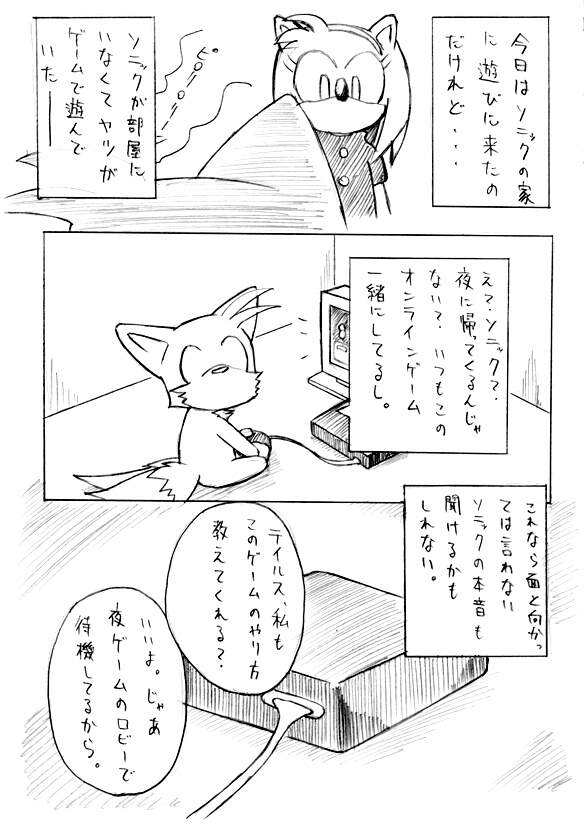 今日はソニックの家
に遊びに来たの
だけれど・・・
ピロリロリ
ソニックが部屋に
いなくてヤツが
ゲームで遊んで
いた――
えて、ソニック?、
夜に帰ってくるんじゃ
ない?、いつもこの
オンラインゲーム
一緒にしてるし。
これなら面と向かっ
ては言わない
ソニックの本音も
聞けるかも
しれない。
テイルス、私も
このゲームのやり方
教えてくれる?
いいよ。じゃあ
夜ゲームのロビーで
待機してるから。